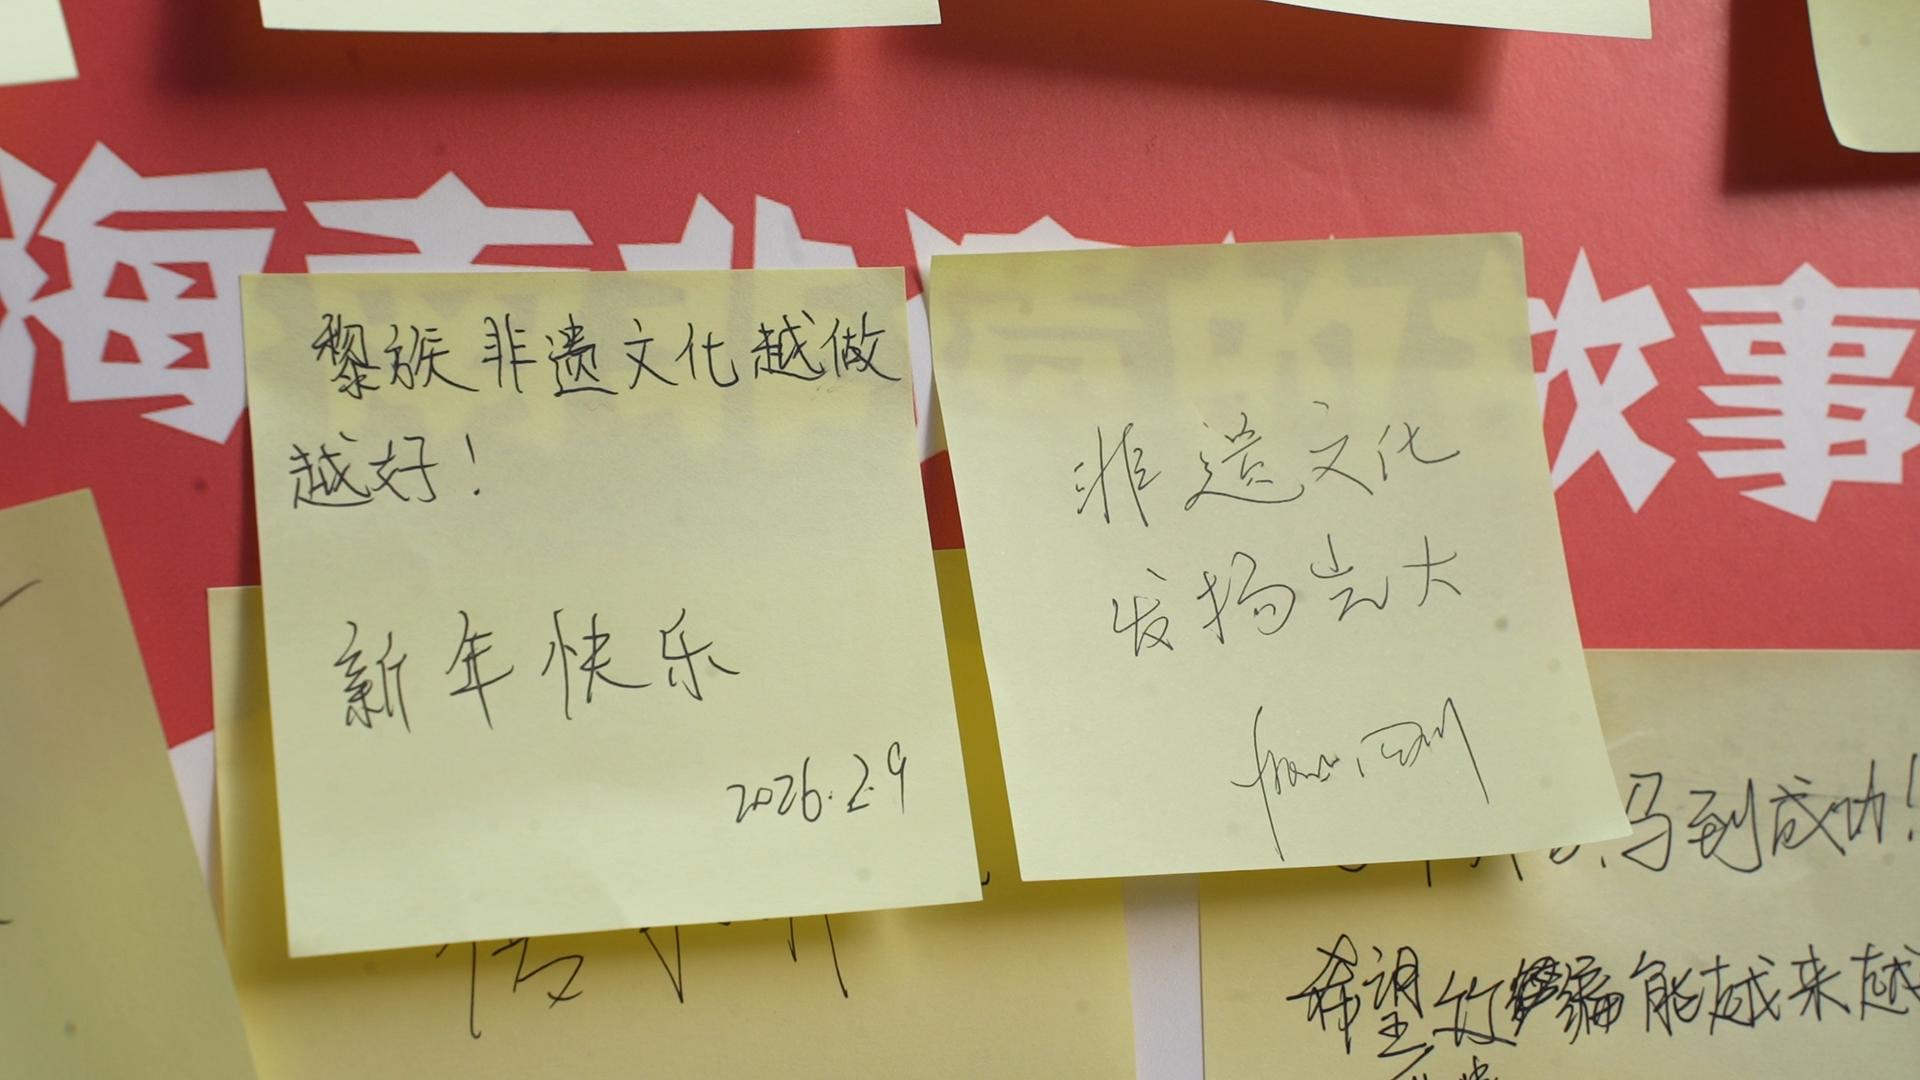 海南非遗的故事
黎族非遗文化越做
越好！
新年快乐
2026.2.9
非遗文化
发扬光大
马到成功！
希望竹编能越来越